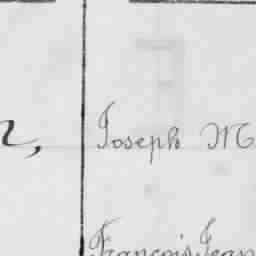 Joseph M
François Jean